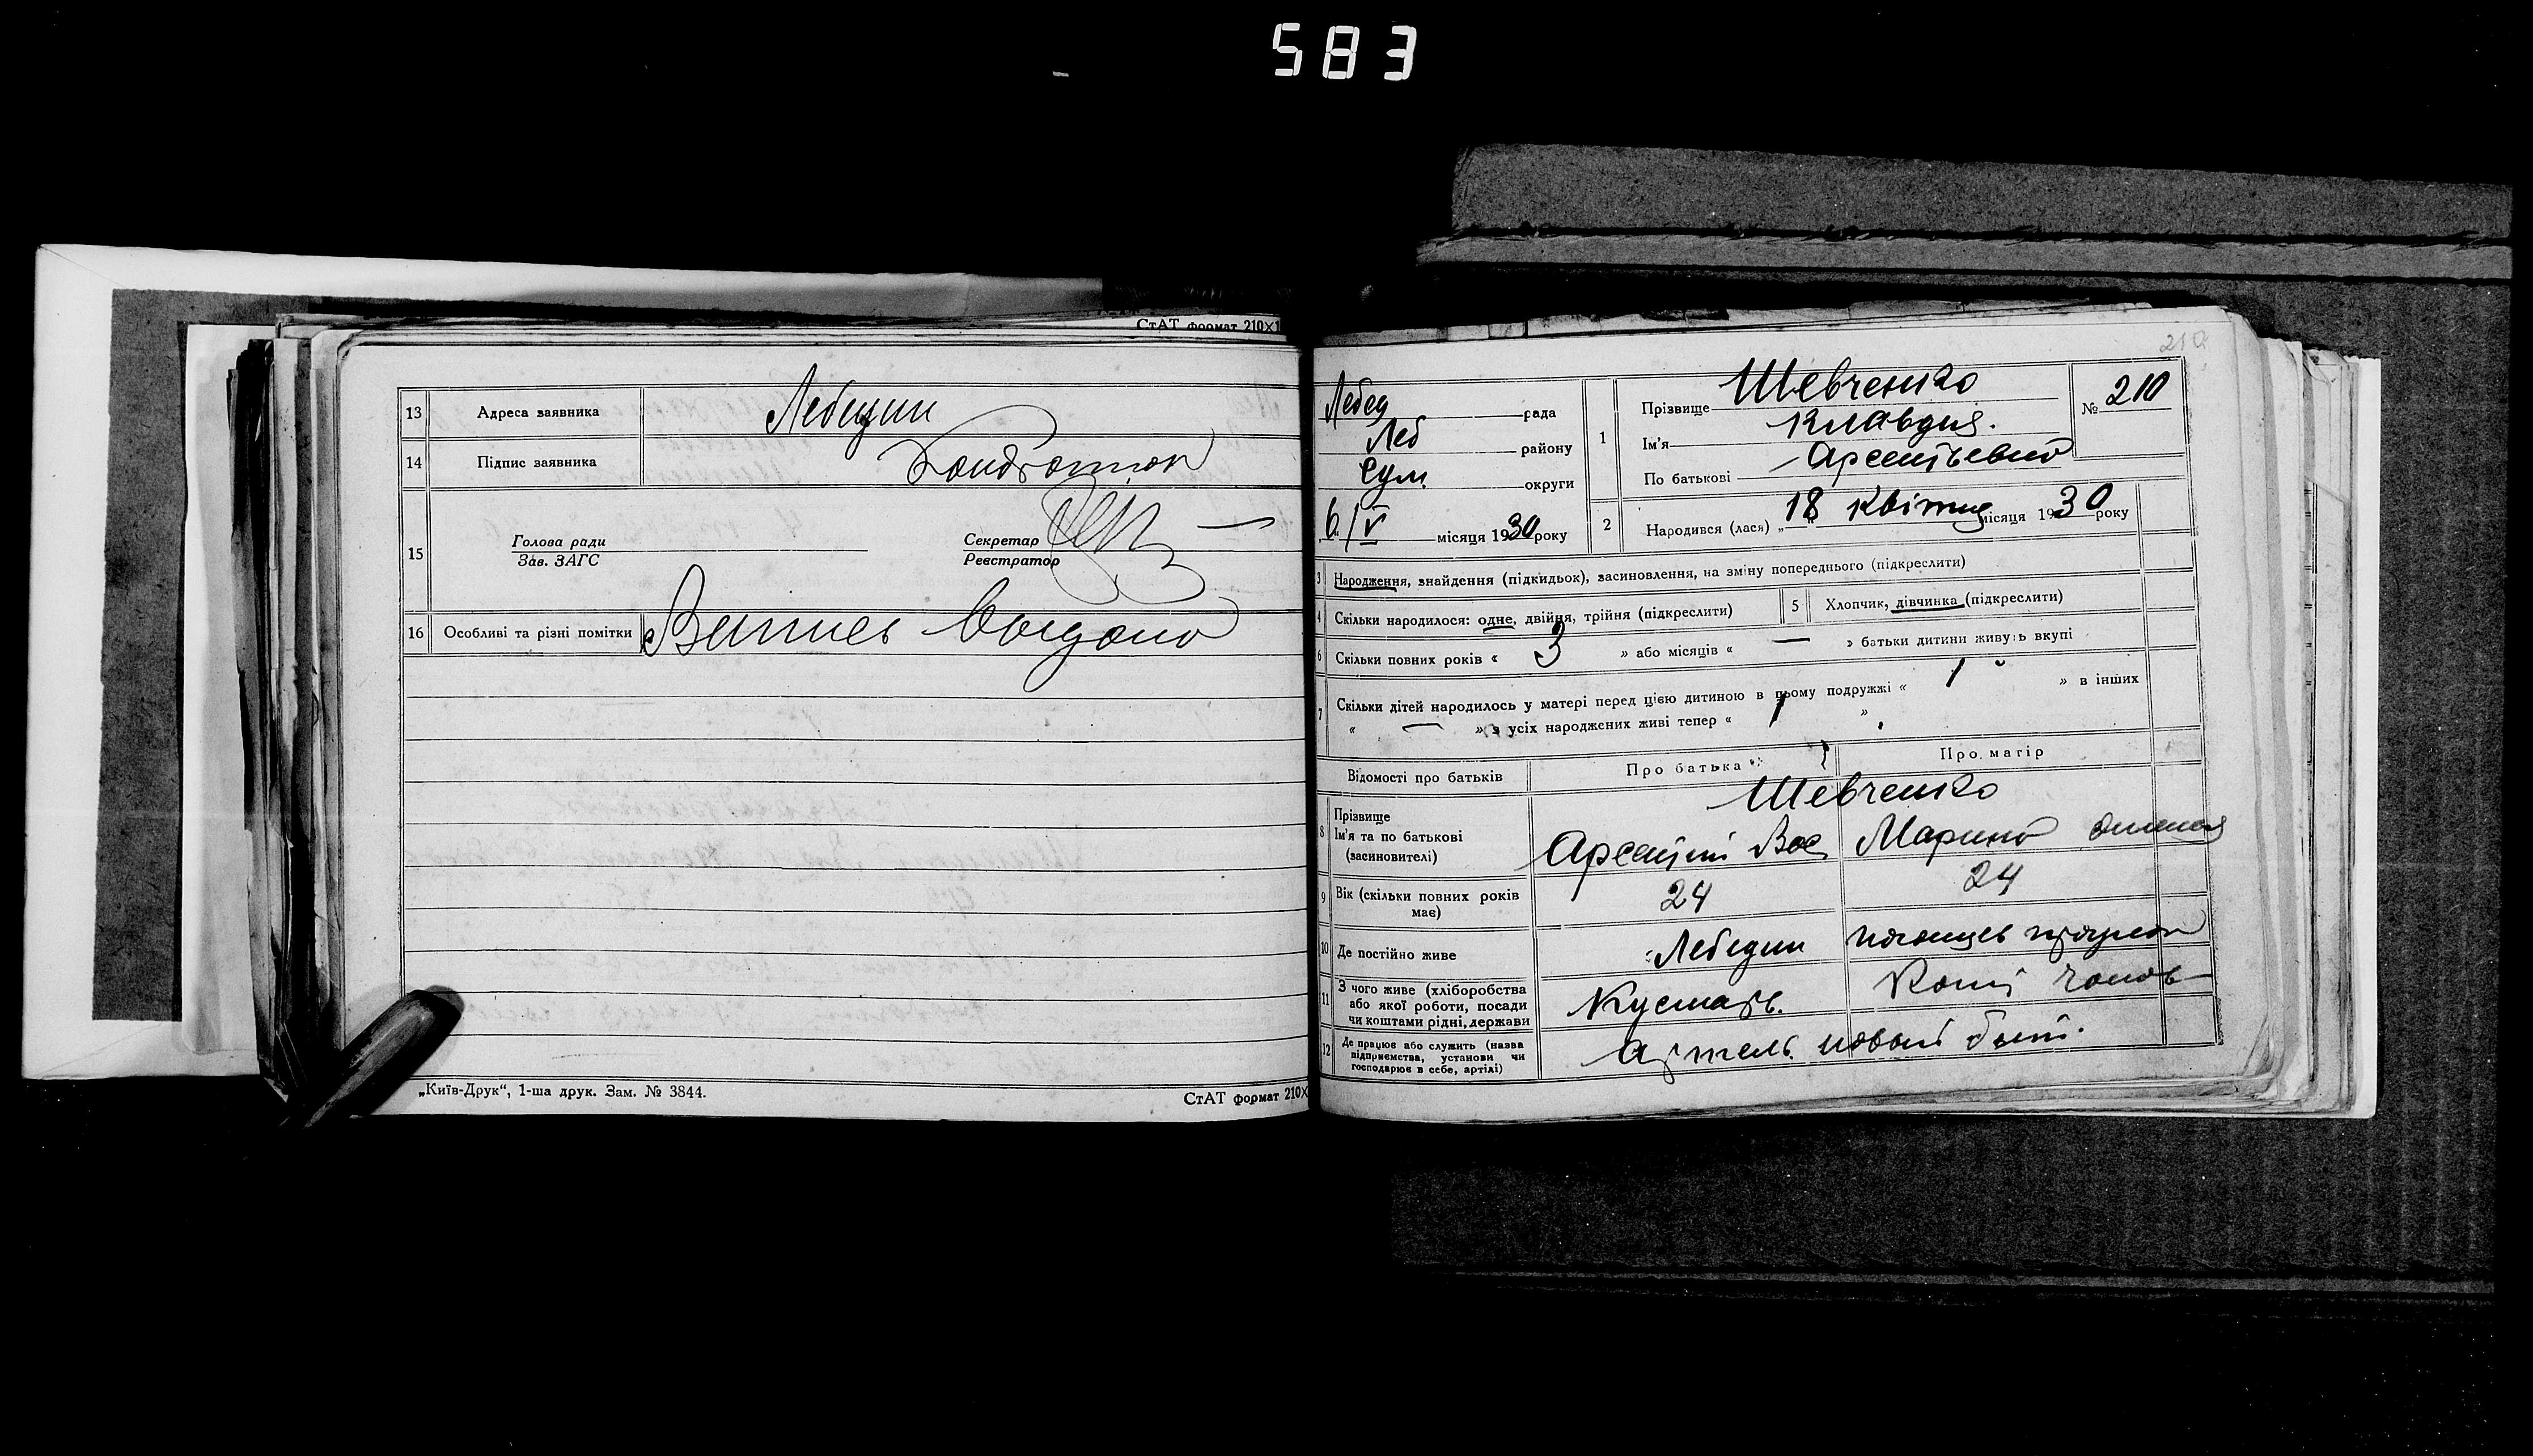 583
СтАТ формат 210×1
13 Адреса заявника Лебедин
14 Підпис заявника
15 Голова ради
Зав. ЗАГС
Секретар
Реєстратор
16 Особливі та різні помітки Выпись выдана
„Київ-Друк“, 1-ша друк. Зам. № 3844.
СтАТ формат 210×
210
Лебед рада
Лед району
Сум округи
6/V місяця 1930 року
1 Прізвище Шевченко
Ім'я Клавдия.
По батькові Арсентьевна
№ 210
2 Народився (лася) „18“ квітня місяця 1930 року
3 Народження, знайдення (підкидьок), засиновлення, на зміну попереднього (підкреслити)
4 Скільки народилося: одне, двійня, трійня (підкреслити)
5 Хлопчик, дівчинка (підкреслити)
6 Скільки повних років « 3 » або місяців « — » батьки дитини живуть вкупі
7 Скільки дітей народилось у матері перед цією дитиною в цьому подружжі « 1 » в інших
« — » з усіх народжених живі тепер « 1 »
Відомості про батьків Про батька Про матір
8 Прізвище
Ім'я та по батькові
(засновителі)
Шевченко
Арсентий Вас Марина
9 Вік (скільки повних років
має)
24 24
10 Де постійно живе Лебедин
11 З чого живе (хліборобства
або якої роботи, посади
чи коштами рідні, держави
Кустарь.
12 Де працює або служить (назва
підприємства, установи чи
господарює в себе, артілі)
Артель новый быт.